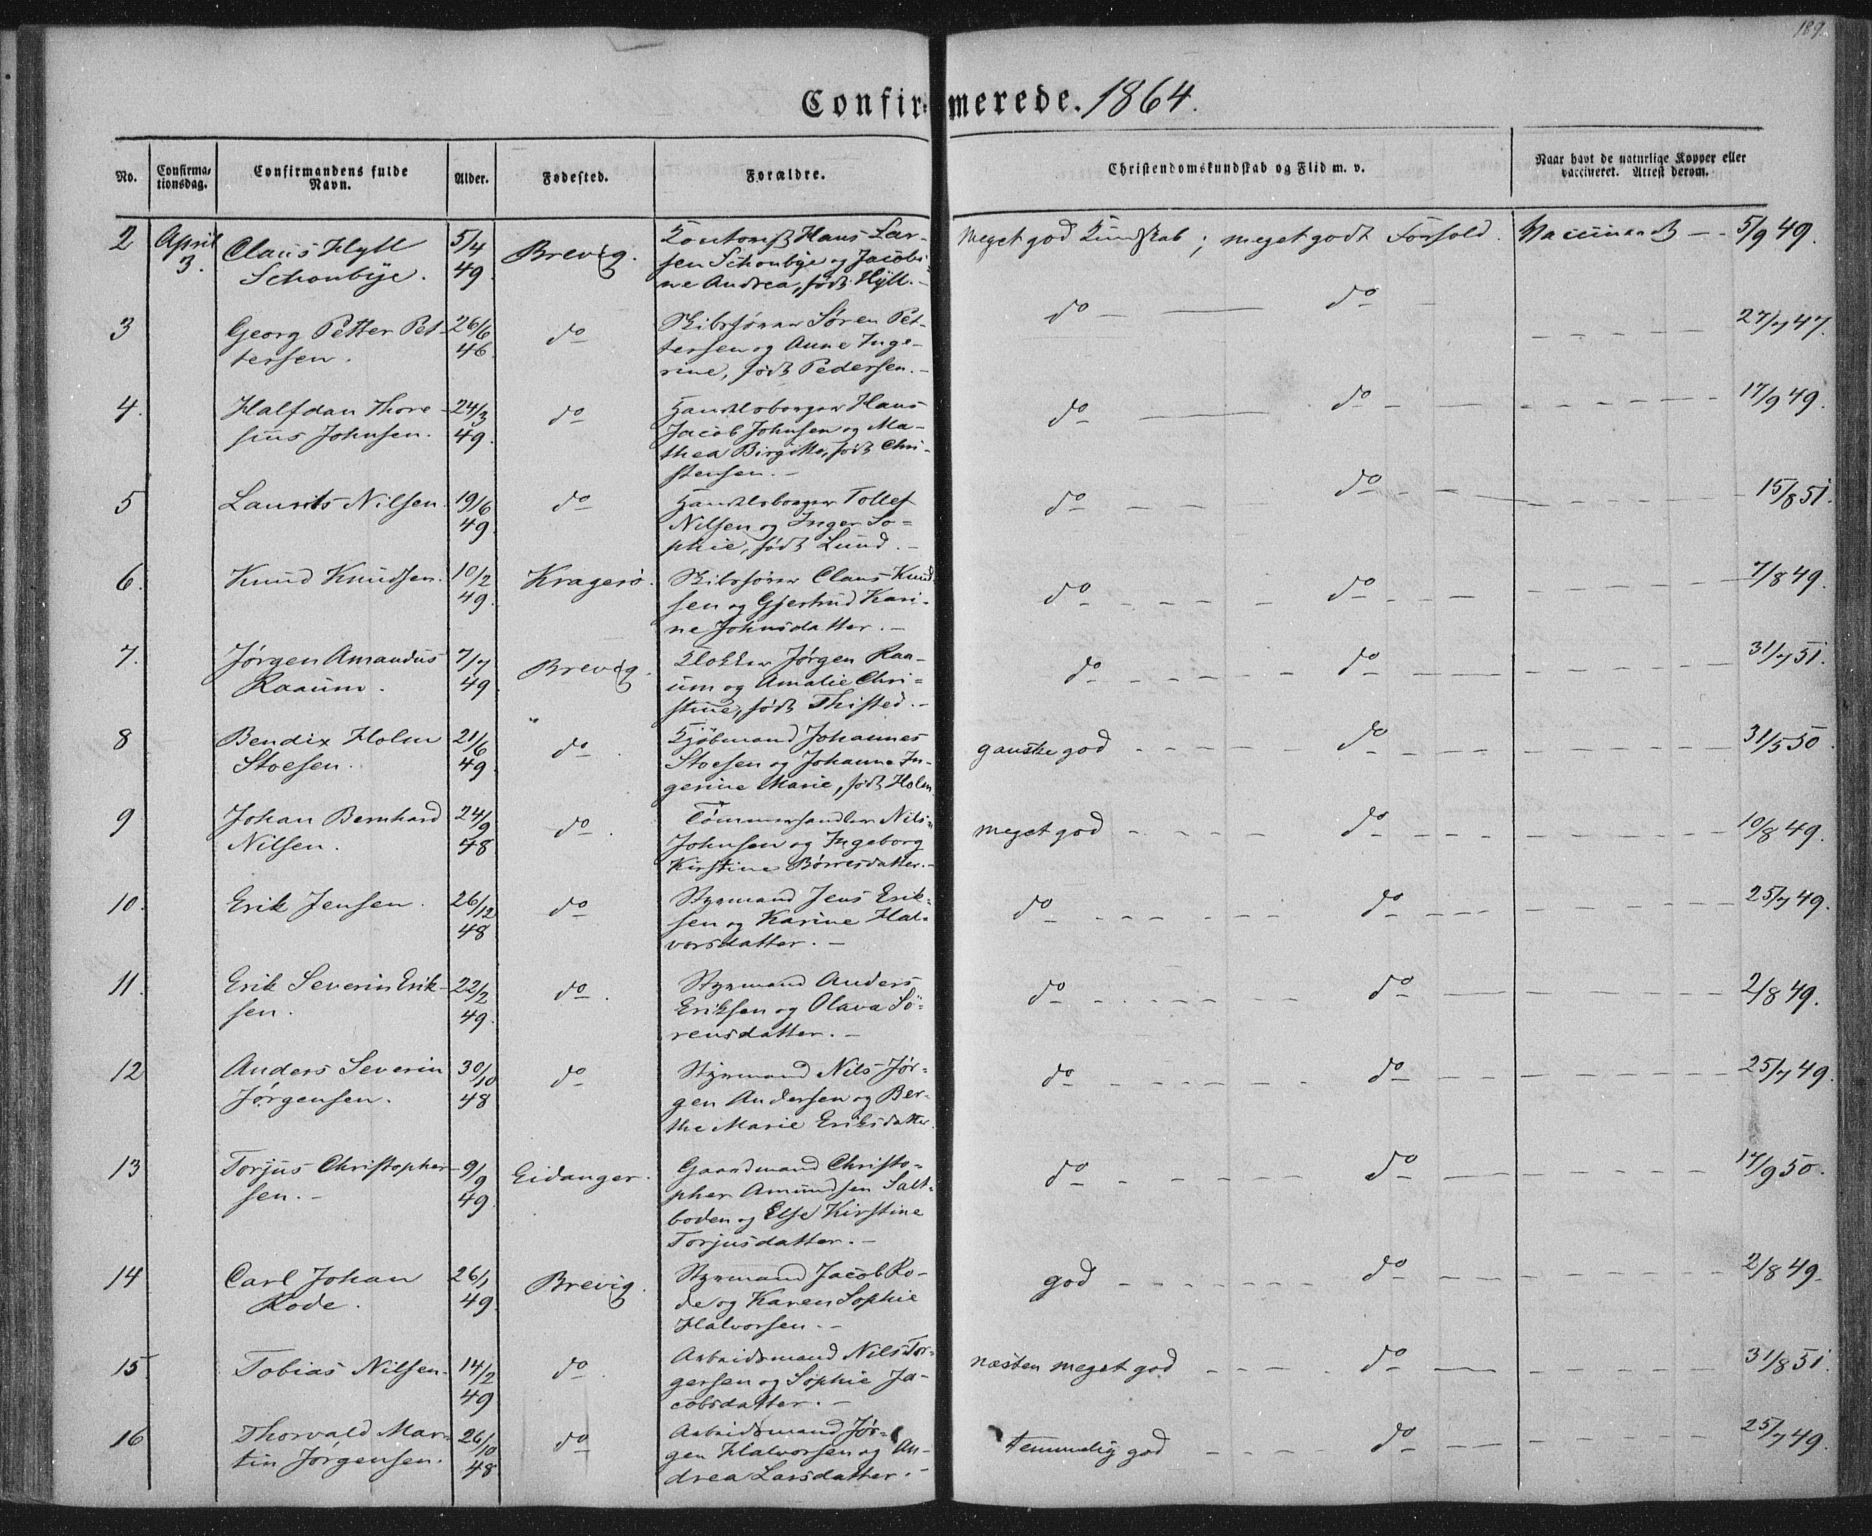 189.
Confirmerede. 1864.
No.
Confirma-
tionsdag.
Confirmandens fulde
Navn.
Alder.
Fødested.
Forældre.
Christendomskundskab og Flid m. v.
Naar havt de naturlige Kopper eller
vaccineret. Attest derom.
2 April 3. Claus Hyll Schonbye. 5/4 49. Brevig.
Kontorist Hans Lar-
sen Schonbye og Jacobi-
ne Andrea, født Hyll. -
Meget god Kundskab; meget godt Forhold. Vaccinered - - 5/9 49.
3 Georg Petter Pet-
tersen. 26/6 46. do
Skibsfører Søren Pet-
tersen og Anne Inge-
rine, født Pedersen. -
do - do - 27/7 47.
4. Halfdan Thore-
sius Johnsen. 24/3 49. do
Handelsborger Hans
Jacob Johnsen og Ma-
thea Birgitte, født Chri-
stensen. -
do do 17/9 49.
5 Laurits Nilsen. 19/6 49. do
Handelsborger Tollef
Nilsen og Inger So-
phie, født Lund. -
do do 15/8 51.
6. Knud Knudsen. 10/2 49. Kragerø.
Skibsfører Claus Knud-
sen og Gjertrud Kari-
ne Johnsdatter. -
do do 7/8 49.
7. Jørgen Amandus
Raaum. 7/7 49. Brevig.
Klokker Jørgen Raa-
um og Amalie Chri-
stine, født Thisted. -
do do 31/7 51.
8 Bendix Holm
Stoesen. 21/6 49. do.
Kjøbmand Johannes
Stoesen og Johanne In-
gerine Marie, født Holm
ganske god do 31/5 50.
9 Johan Bernhard
Nilsen. 24/9 48. do.
Tømmerhandler Nils
Johnsen og Ingeborg
Kirstine Børresdatter. -
meget god do 10/8 49.
10. Erik Jensen. 26/12 48 do
Styrmand Jens Erik-
sen og Karine Hal-
vorsdatter. -
do do 25/7 49.
11. Erik Severin Erik-
sen. 22/2 49. do.
Styrmand Anders
Eriksen og Olava Sø-
rensdatter. -
do do 2/8 49.
12 Anders Severin
Jørgensen. 30/10 48 do
Styrmand Nils Jør-
gen Andersen og Ber-
the Marie Eriksdatter.
do do 25/7 49.
13 Torjus Christopher-
sen. - 9/9 49. Eidanger.
Gaardmand Christo-
pher Amundsen Salt-
boden og Else Kirstine
Torjusdatter. -
do do 17/9 50.
14 Carl Johan
Rode. 26/1 49. Brevig.
Styrmand Jacob Ro-
de og Karen Sophie
Halvorsen. -
god do 2/8 49.
15 Tobias Nilsen. 14/2 49 do.
Arbeidsmand Nils Tor-
gersen og Sophie Ja-
cobsdatter. -
næsten meget god do 31/8 51.
16 Thorvald Mar-
tin Jørgensen. 26/10 48 do
Arbeidsmand Jør-
gen Halvorsen og An-
drea Larsdatter. -
temmelig god do 25/7 49.